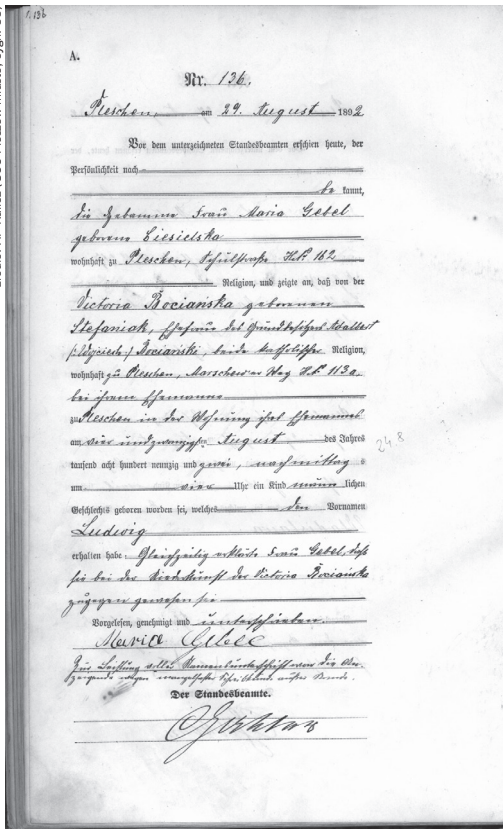 1.136
A.
Nr. 136.
Pleschen, am 29. August 1892
Vor dem unterzeichneten Standesbeamten erschien heute, der
Persönlichkeit nach
be kannt,
die Hebamme Frau Maria Gebel
geborene Ciesielska
wohnhaft zu Pleschen, Schulstraße No 162
Religion, und zeigte an, daß von der
Victoria Bociańska geborenen
Stefaniak, Ehefrau des Grundbesitzers Adalbert
(:Wojciech:) Bociański, beide katholischer Religion,
wohnhaft zu Pleschen, Marschewer Weg No 113a
bei ihrem Ehemanne
zu Pleschen in der Wohnung ihres Ehemannes
am vier undzwanzigsten August des Jahres
tausend acht hundert neunzig und zwei, nachmittag s
um vier Uhr ein Kind männ lichen
Geschlechts geboren worden sei, welches den Vornamen
Ludwig
erhalten habe. Gleichzeitig erklärte Frau Gebel, daß
sie bei der Niederkunft der Victoria Bociańska
zugegen gewesen sei
Vorgelesen, genehmigt und unterschrieben.
Maria Gebel
Zur Leistung voller Namensunterschrift war die An-
zeigende wegen mangelhafter Schreibkunde außer Stande.
Der Standesbeamte.
24 8